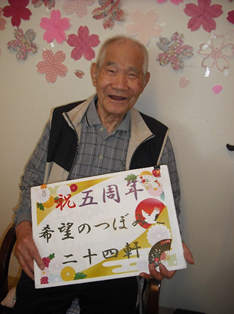 祝五周年
希望のつぼみ
二十四軒